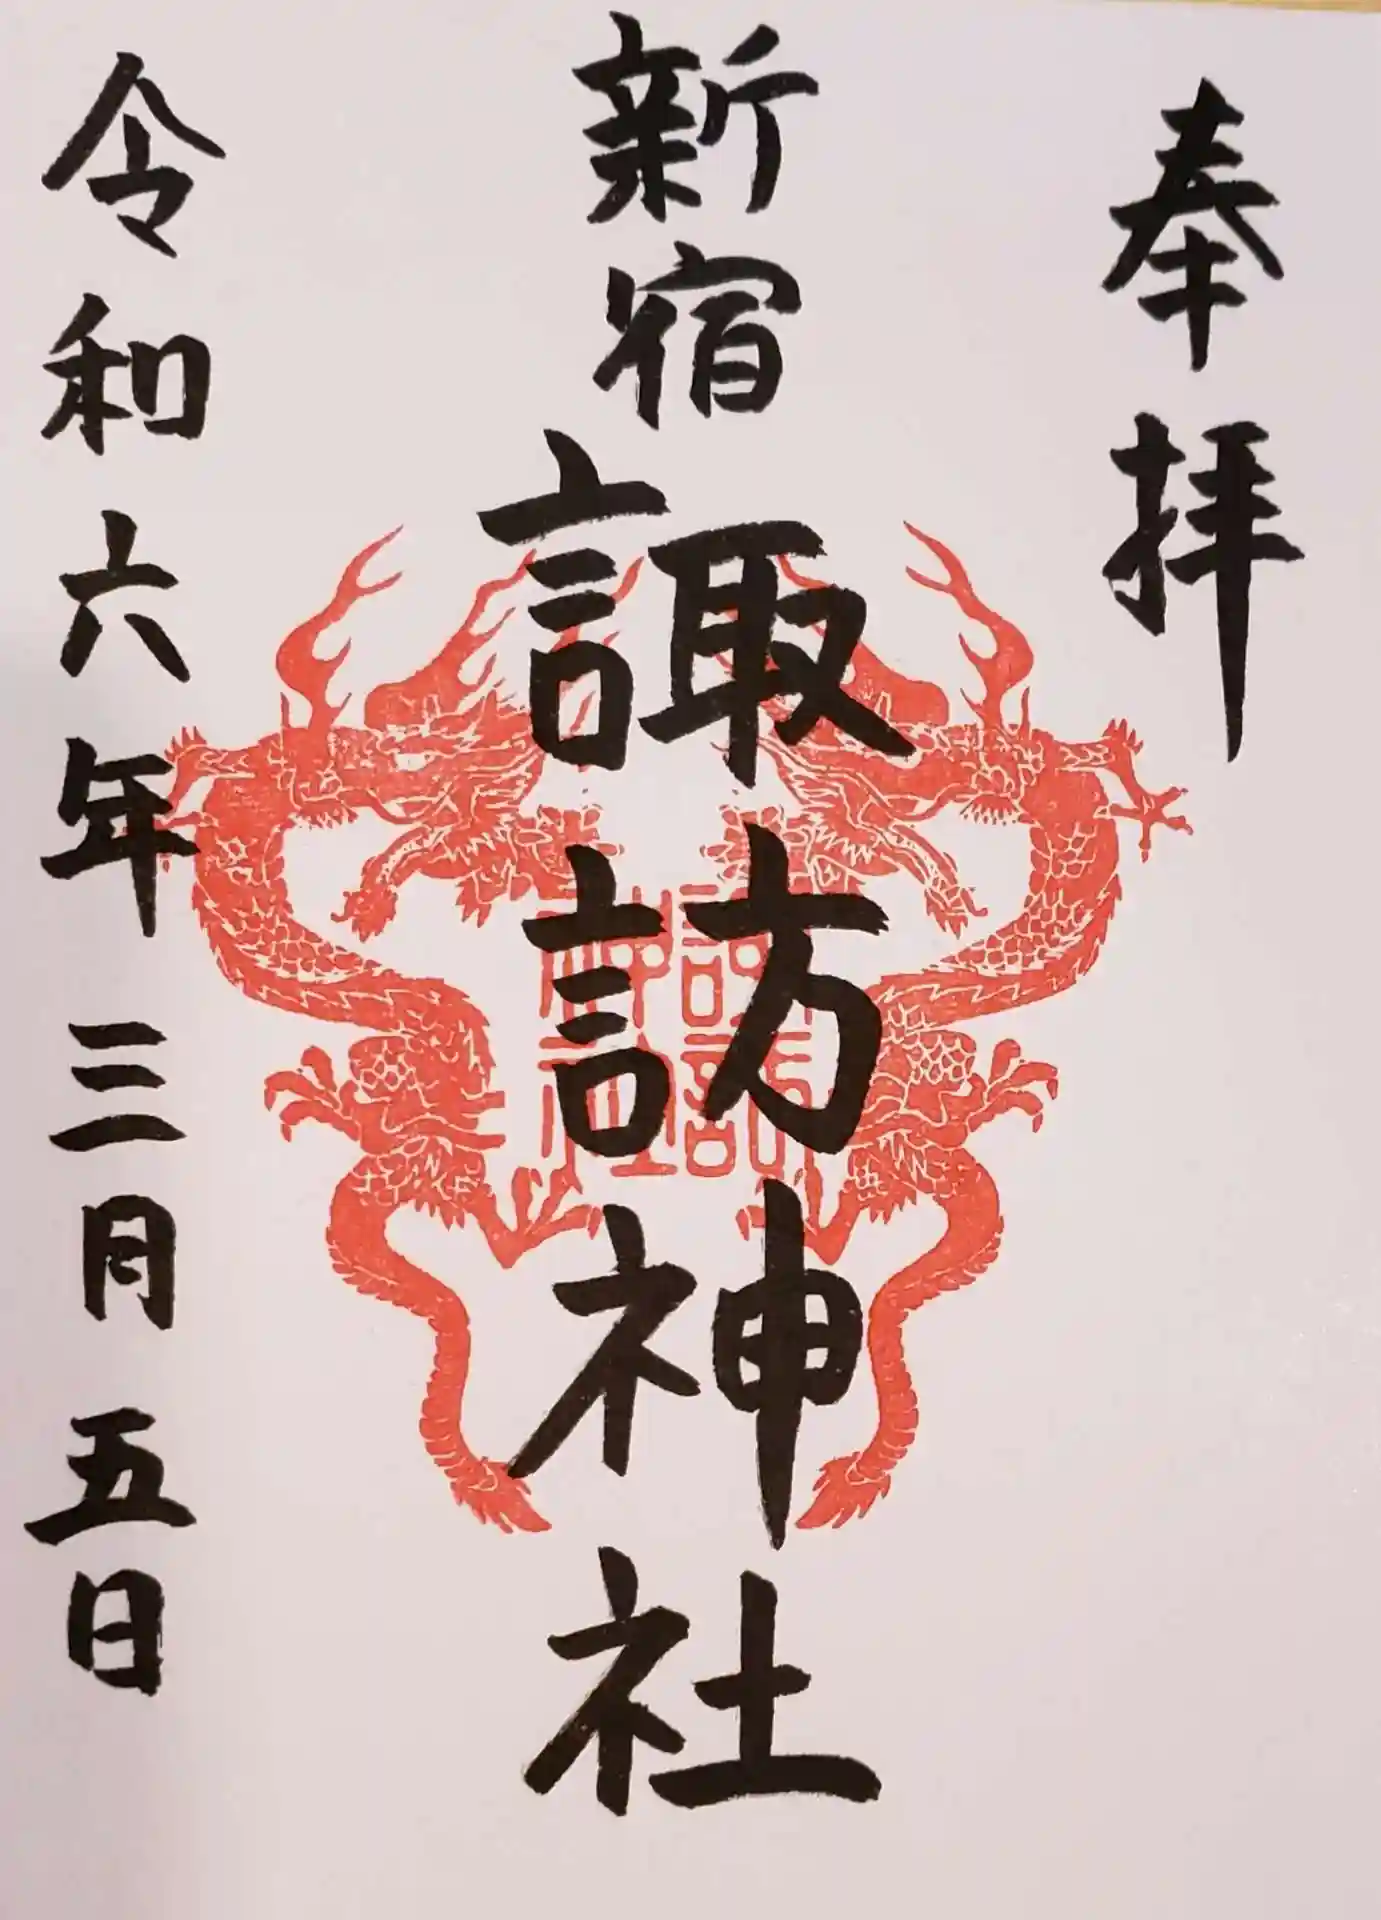 奉拝
新宿
諏訪神社
諏訪
神社
令和六年三月五日